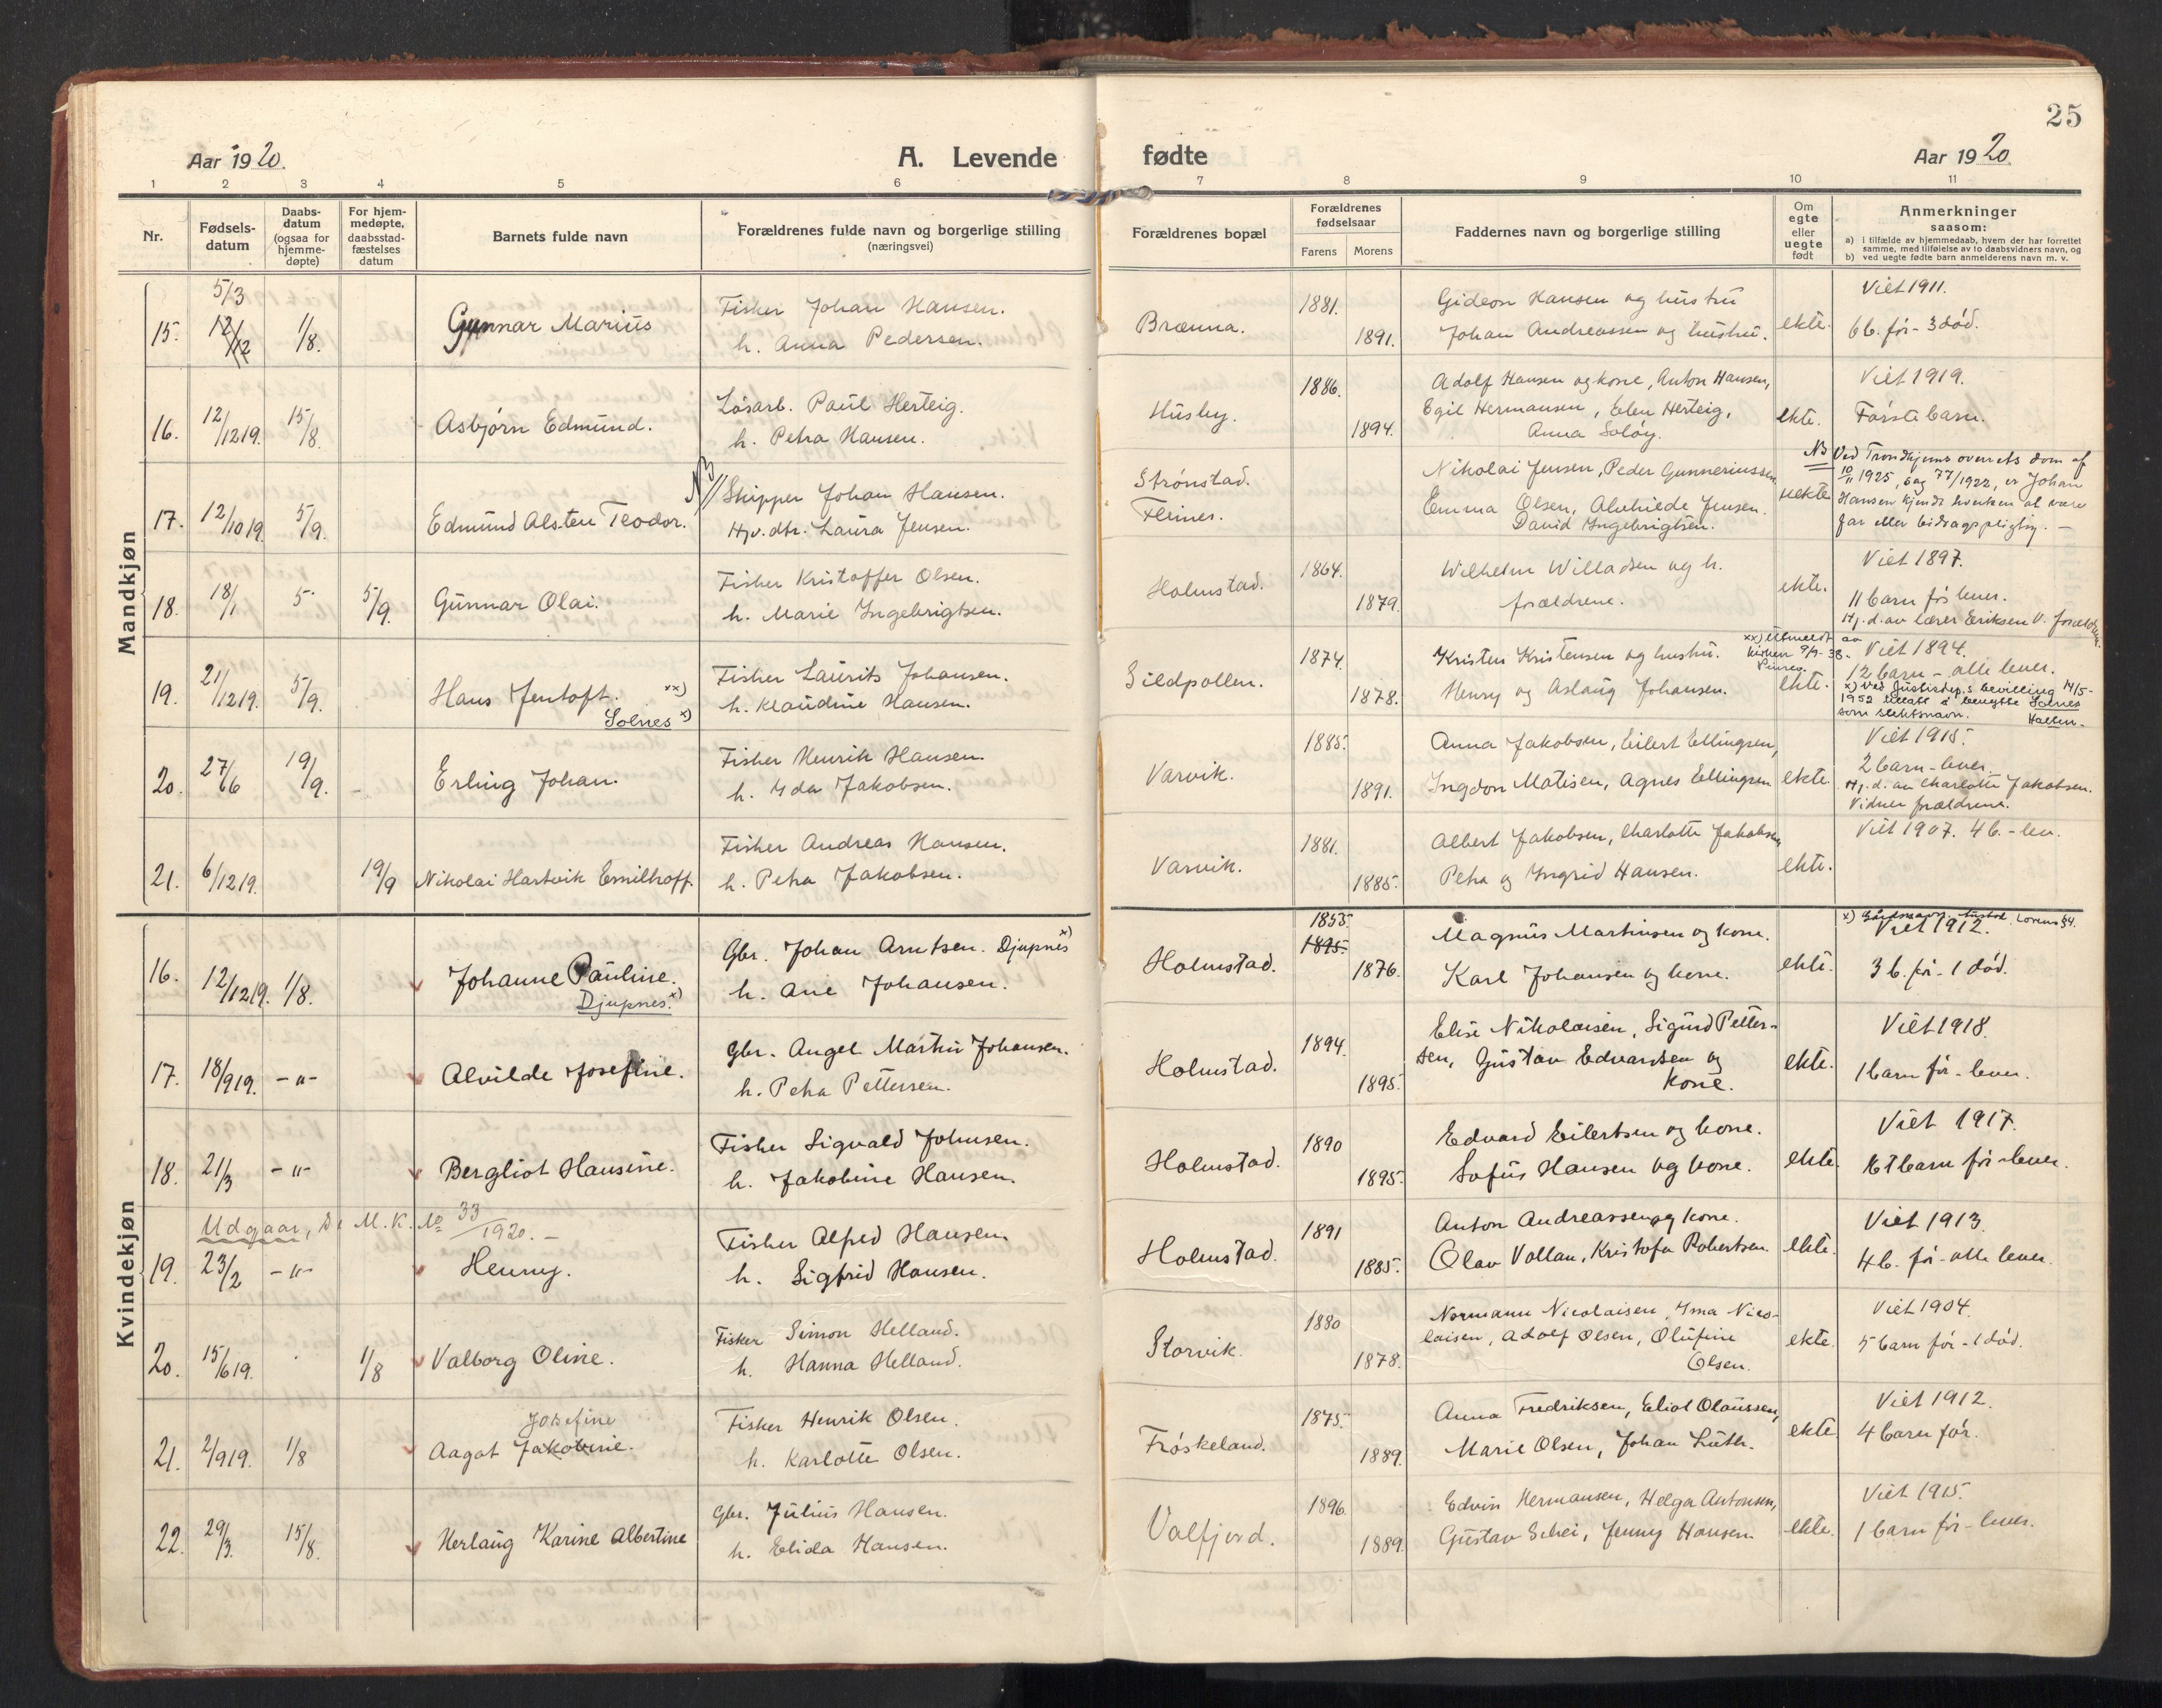 25
Aar 1920.
A. Levende fødte
Aar 1920
1 2 3 4 5 6 7 8 9 10 11
Nr.
Fødsels-
datum
Daabs-
datum
(ogsaa for
hjemme-
døpte)
For hjem-
medøpte,
daabsstad-
fæstelses
datum
Barnets fulde navn
Forældrenes fulde navn og borgerlige stilling
(næringsvei)
Forældrenes bopæl
Forældrenes
fødselsaar
Farens Morens
Faddernes navn og borgerlige stilling
Om
egte
eller
uegte
født
Anmerkninger
saasom:
a) i tilfælde av hjemmedaab, hvem der har forrettet
samme, med tilføielse av to daabsvidners navn, og
b) ved uegte fødte barn anmelderens navn m. v.
Mandkjøn
5/3
15. 12/12 1/8. Gunnar Marius
Fisker Johan Hansen.
h. Anna Pedersen.
Brænna. 1881. 1891.
Gideon Hansen og hustru
Johan Andreassen og hustru.
ekte.
Viet 1911.
6 b. før - 3 død.
16. 12/12 19. 15/8. Asbjørn Edmund.
Løsarb. Paul Herteig.
h. Petra Hansen.
Husby. 1886. 1894.
Adolf Hansen og kone, Anton Hansen,
Egil Hermansen, Elen Herteig,
Anna Soløy.
ekte.
Viet 1919.
Første barn.
17. 12/10 19. 5/9. Edmund Alsten Teodor.
NB // Skipper Johan Hansen.
Hjv. dtr. Laura Jensen.
Strønstad.
Fleines.
Nikolai Jensen, Peder Gunneriussen
Emma Olsen, Alvhilde Jensen.
David Ingebrigtsen.
uekte
NB Ved Trondhjems overrets dom af
10/11 1925, sag 77/1922, er Johan
Hansen kjendt hverken at være
far eller bidragspligtig. -
18. 18/1 5 5/9. Gunnar Olai.
Fisker Kristoffer Olsen.
h. Marie Ingebrigtsen.
Holmstad. 1864. 1879.
Wilhelm Willadsen og h.
forældrene.
ekte.
Viet 1897.
11 barn før lever.
Hj. d. av lærer Eriksen V. forældrene.
19. 21/12 19. 5/9. Hans Jentoft. xx)
Solnes x)
Fisker Laurits Johansen.
h. Klaudine Hansen.
Sildpollen. 1874. 1878.
Kristen Kristensen og hustru.
Henry og Aslaug Johansen.
xx) Utmeldt av
kirken 9/9-38.
ekte.
Viet 1894.
12 barn - alle lever.
x) Ved Justisdep.s bevilling 14/5-
1952 tillatt å benytte Solnes
som slektsnavn.
20. 27/6 19/9. - Erling Johan.
Fisker Henrik Hansen.
h. Ida Jakobsen.
Varvik. 1885. 1891.
Anna Jakobsen, Eilert Ellingsen,
Ingdon Matisen, Agnes Ellingsen
ekte.
Viet 1915.
2 barn - lever.
Hj. d. av Charlotte Jakobsen.
Vidner forældrene.
21. 6/12 19. 19/9 Nikolai Hartvik Emilhoff.
Fisker Andreas Hansen.
h. Petra Jakobsen.
Varvik. 1881. 1885.
Albert Jakobsen, Charlotte Jakobsen,
Petra og Ingrid Hansen.
ekte.
Viet 1907. 4 b. - lev.
Kvindekjøn
16. 12/12 19. 1/8. Johanne Pauline.
Djupnes. x)
Gbr. Johan Arntsen. Djupnes x)
h. Ane Johansen.
Holmstad. 1855. 1895. 1876.
Magnus Martinsen og kone.
Karl Johansen og kone.
ekte.
Viet 1912.
3 b. før - 1 død.
17. 18/9 19. -"- Alvilde Josefine.
Gbr. Angel Martin Johansen.
h. Petra Pettersen.
Holmstad. 1894. 1895.
Elise Nikolaisen, Sigurd Petter-
sen, Gustav Edvardsen og
kone.
ekte.
Viet 1918.
1 barn før - lever.
18. 21/3 -"- Bergliot Hansine.
Fisker Sigvald Johnsen.
h. Jakobine Hansen.
Holmstad. 1890 1895.
Edvard Eilertsen og kone.
Sofus Hansen og kone.
ekte.
Viet 1917.
1 barn før - lever.
Udgaar, Se M. K. No 33/1920. -
19. 23/2 -"- Henny.
Fisker Alfred Hansen.
h. Sigfrid Hansen.
Holmstad. 1891 1885.
Anton Andreassen og kone.
Olav Vollan, Kristofa Robertsen.
ekte.
Viet 1913.
4 b. før - alle lever.
20. 15/6 19. 1/8 Valborg Oline.
Fisker Simon Helland.
h. Hanna Helland.
Storvik. 1880 1878.
Normann Nicolaisen, Ima Nico-
laisen, Adolf Olsen, Olufine
Olsen.
ekte.
Viet 1904.
5 barn før - 1 død.
Josefine
21. 2/9 19. 1/8 Aagot Jakobine.
Fisker Henrik Olsen.
h. Karlotte Olsen.
Frøskeland. 1875. 1889.
Anna Fredriksen, Eliot Olaussen,
Marie Olsen, Johan Luth.
ekte.
Viet 1912.
4 barn før.
22. 29/3. 15/8. Herlaug Karine Albertine
Gbr. Julius Hansen.
h. Elida Hansen.
Valfjord. 1896. 1889.
Edvin Hermansen, Helga Antonsen,
Gustav Schei, Jenny Hansen
ekte.
Viet 1915.
1 barn før - lever.